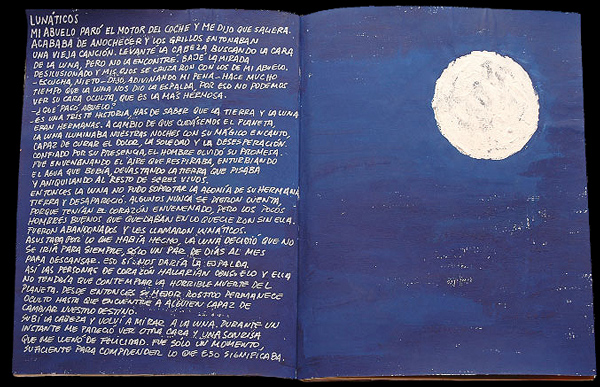 LUNÁTICOS
MI ABUELO PARÓ EL MOTOR DEL COCHE Y ME DIJO QUE SALIERA.
ACABABA DE ANOCHECER Y LOS GRILLOS ENTONABAN
UNA VIEJA CANCIÓN. LEVANTÉ LA CABEZA BUSCANDO LA CARA
DE LA LUNA, PERO NO LA ENCONTRÉ. BAJÉ LA MIRADA
DESILUSIONADO Y MIS OJOS SE CRUZARON CON LOS DE MI ABUELO.
-ESCUCHA, NIETO-DIJO, ADIVINANDO MI PENA-. HACE MUCHO
TIEMPO QUE LA LUNA NOS DIO LA ESPALDA, POR ESO NO PODEMOS
VER SU CARA OCULTA, QUE ES LA MÁS HERMOSA.
-¿QUÉ PASÓ, ABUELO?
-ES UNA TRISTE HISTORIA, HAS DE SABER QUE LA TIERRA Y LA LUNA
ERAN HERMANAS. A CAMBIO DE QUE CUIDÁSEMOS EL PLANETA,
LA LUNA ILUMINABA NUESTRAS NOCHES CON SU MÁGICO ENCANTO,
CAPAZ DE CURAR EL DOLOR, LA SOLEDAD Y LA DESESPERACIÓN.
CONFIADO POR SU PRESENCIA, EL HOMBRE OLVIDÓ SU PROMESA.
FUE ENVENENANDO EL AIRE QUE RESPIRABA, ENTURBIANDO
EL AGUA QUE BEBÍA, DEVASTANDO LA TIERRA QUE PISABA
Y ANIQUILANDO AL RESTO DE SERES VIVOS.
ENTONCES LA LUNA NO PUDO SOPORTAR LA AGONÍA DE SU HERMANA
TIERRA Y DESAPARECIÓ. ALGUNOS NUNCA SE DIERON CUENTA,
PORQUE TENÍAN EL CORAZÓN ENVENENADO, PERO LOS POCOS
HOMBRES BUENOS QUE QUEDABAN ENLOQUECIERON SIN ELLA.
FUERON ABANDONADOS Y LES LLAMARON LUNÁTICOS.
ASUSTADA POR LO QUE HABÍA HECHO, LA LUNA DECIDIÓ QUE NO
SE IRÍA PARA SIEMPRE, SÓLO UN PAR DE DÍAS AL MES
PARA DESCANSAR. ESO SÍ: NOS DARÍA LA ESPALDA.
ASÍ LAS PERSONAS DE CORAZÓN HALLARÍAN CONSUELO Y ELLA
NO TENDRÍA QUE CONTEMPLAR LA HORRIBLE MUERTE DEL
PLANETA. DESDE ENTONCES SU MEJOR ROSTRO PERMANECE
OCULTO HASTA QUE ENCUENTRE A ALGUIEN CAPAZ DE
CAMBIAR NUESTRO DESTINO.
SUBÍ LA CABEZA Y VOLVÍ A MIRAR A LA LUNA. DURANTE UN
INSTANTE ME PARECIÓ VER OTRA CARA Y UNA SONRISA
QUE ME LLENÓ DE FELICIDAD. FUE SOLO UN MOMENTO,
SUFICIENTE PARA COMPRENDER LO QUE ESO SIGNIFICABA.